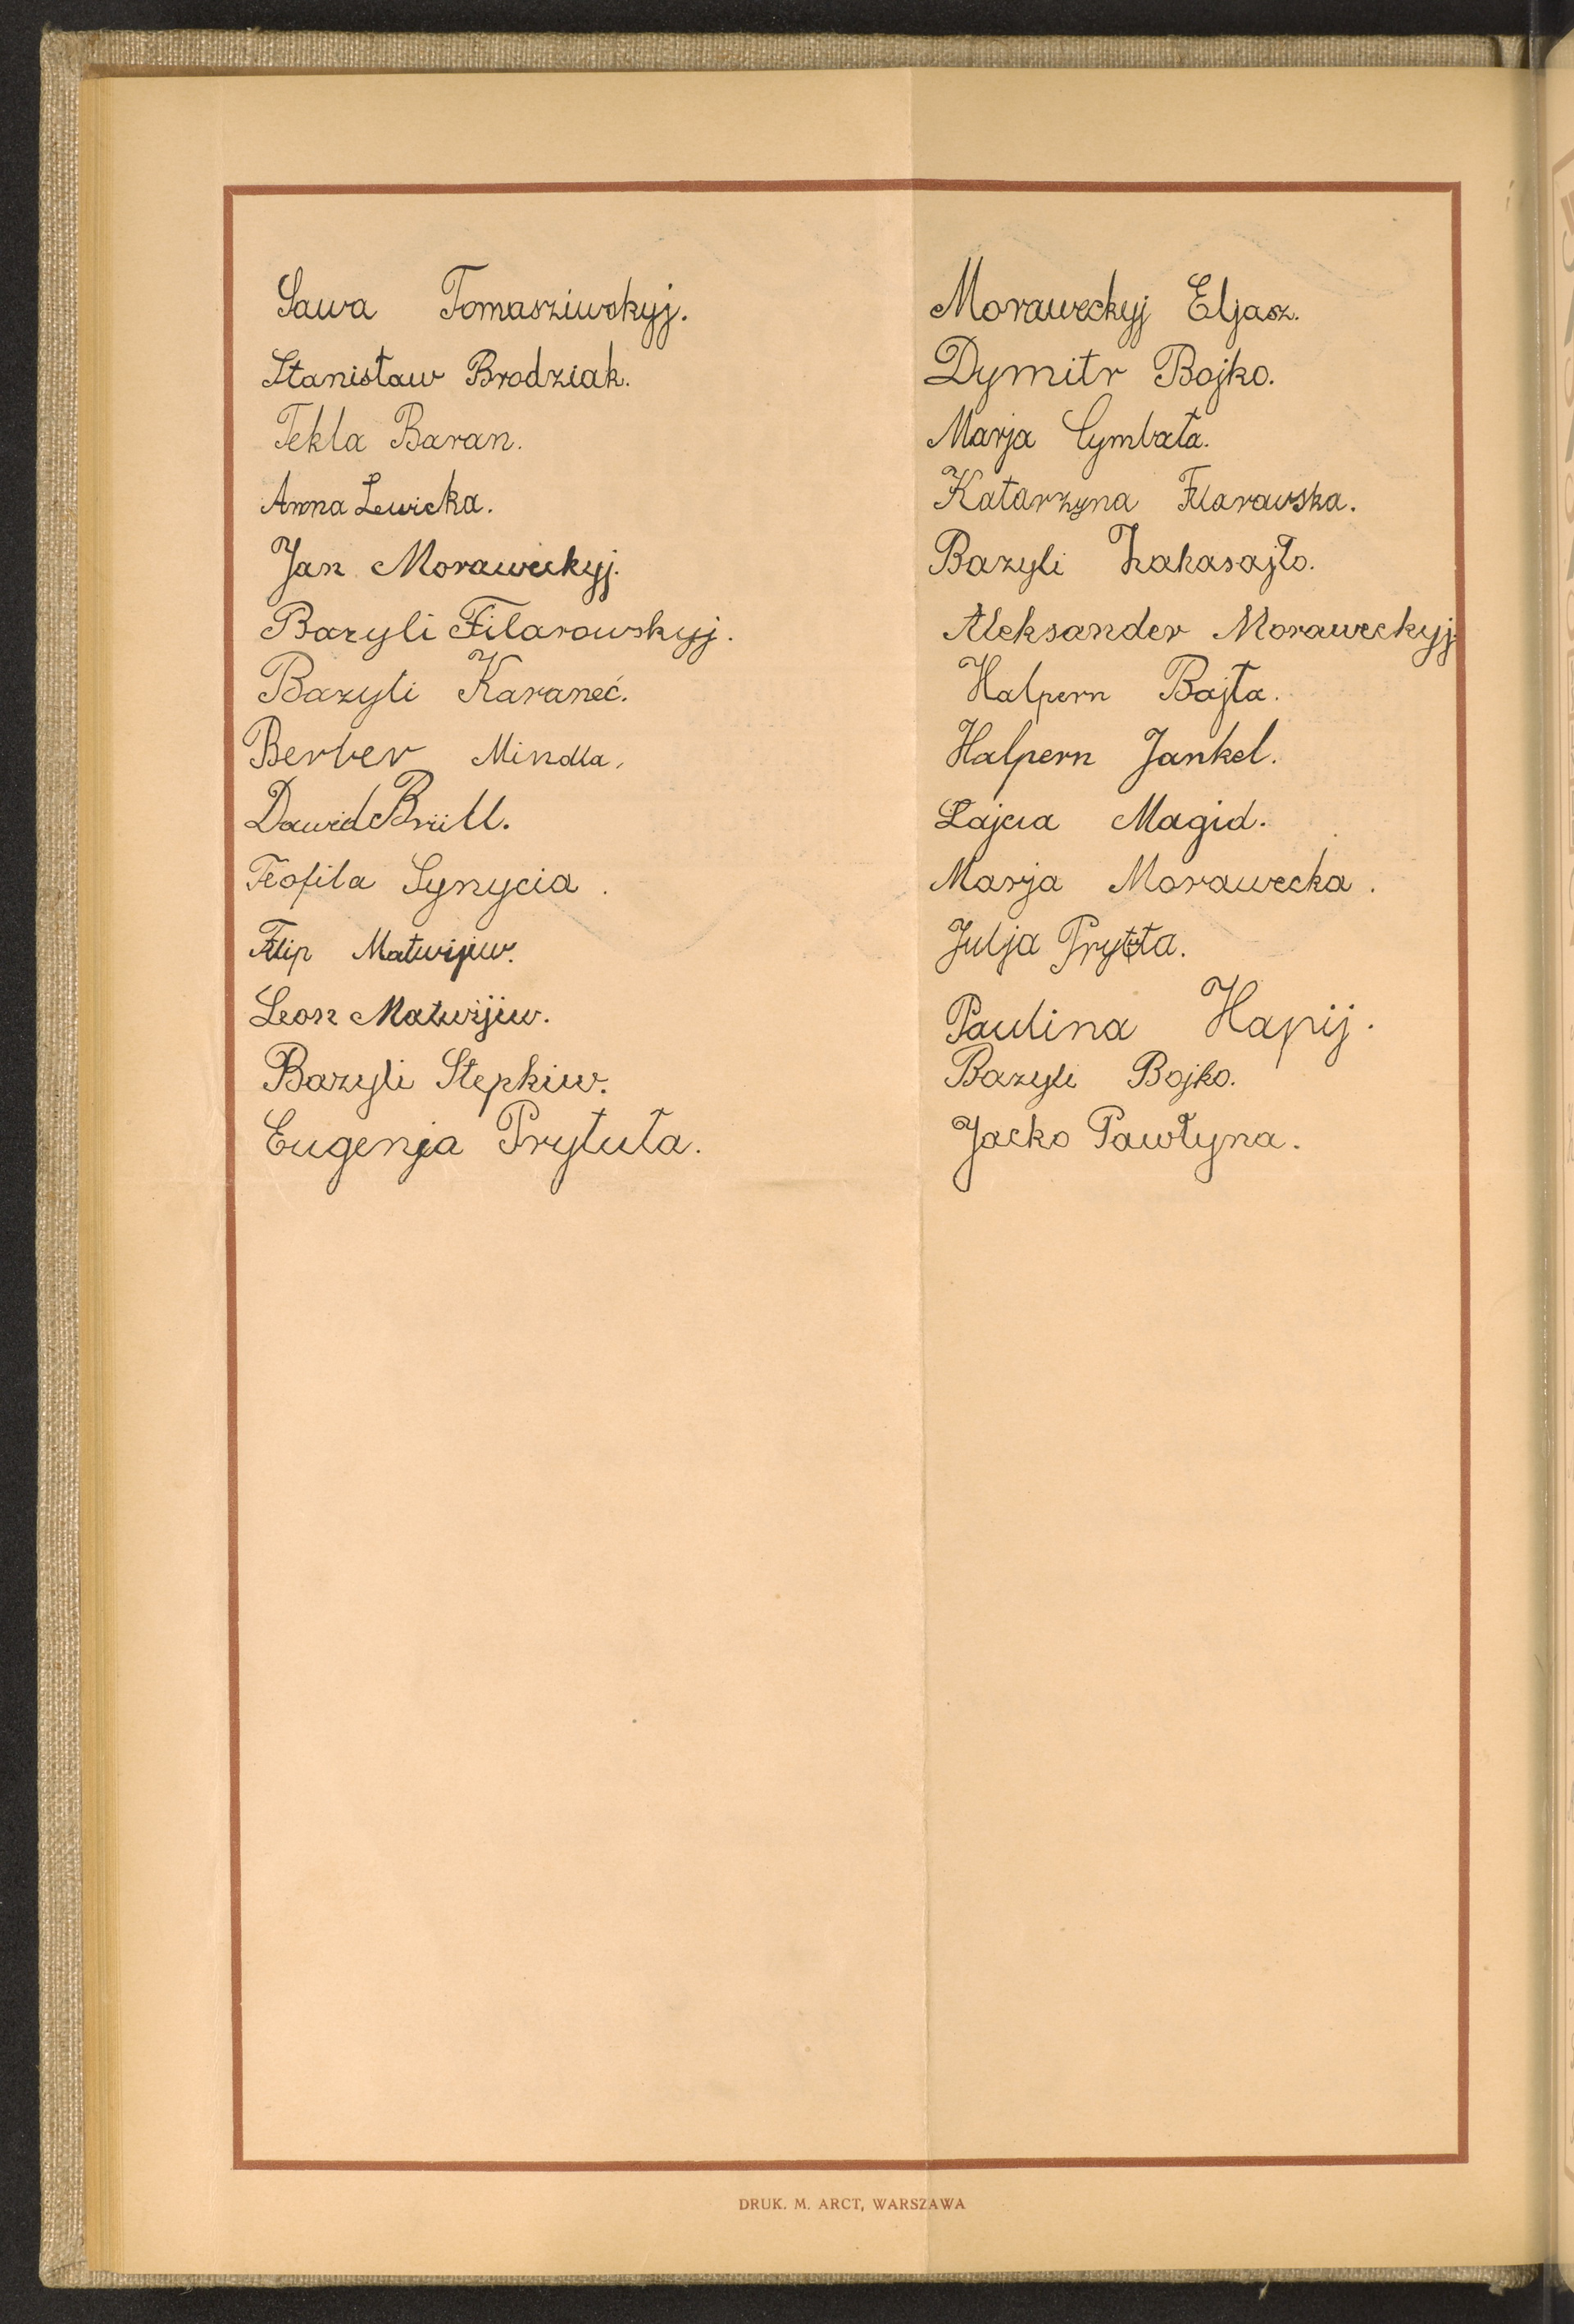 Sawa Tomasziwskyj.
Stanisław Brodziak.
Tekla Baran.
Anna Lewicka.
Jan Moraweckyj.
Bazyli Filarowskyj.
Bazyli Karaneć.
Berber Mindla,
Dawid Brüll.
Teofila Synycia.
Filip Matwijiw.
Leon Matwijiw.
Bazyli Stepkiw.
Eugenja Prytuła.
Moraweckyj Eljasz.
Dymitr Bojko.
Marja Cymbała.
Katarzyna Filarowska.
Bazyli Zakasajło.
Aleksander Moraweckyj
Halpern Bajła.
Halpern Jankel.
Łajcia Magid.
Marja Morawecka.
Julja Prytuła.
Paulina Hapij.
Bazyli Bojko.
Jacko Pawłyna.
DRUK. M. ARCT, WARSZAWA